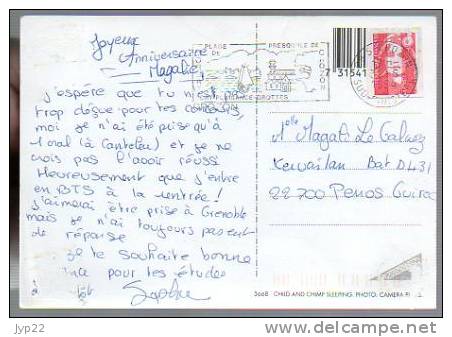 Joyeux
Anniversaire
Magalie
J'espère que tu n'est
trop déçue pour tes concours,
moi je n'ai été prise qu'à
1 oral (à Canteleu) et je ne
crois pas l'avoir réussi
Heureusement que j'entre
en BTS à la rentrée!
j'aimerai être prise à Grenoble
mais je n'ai toujours pas eut
de réponse
Je te souhaite bonne
pour tes études
à
PLAGE
PRESQU'ILE DE
GROTTES
731541
Melle Magali Le
Bat D431
22700 Perros Guirec
3668 - CHILD AND CHIMP SLEEPING. PHOTO. CAMERA
delcampe.net
jyp22